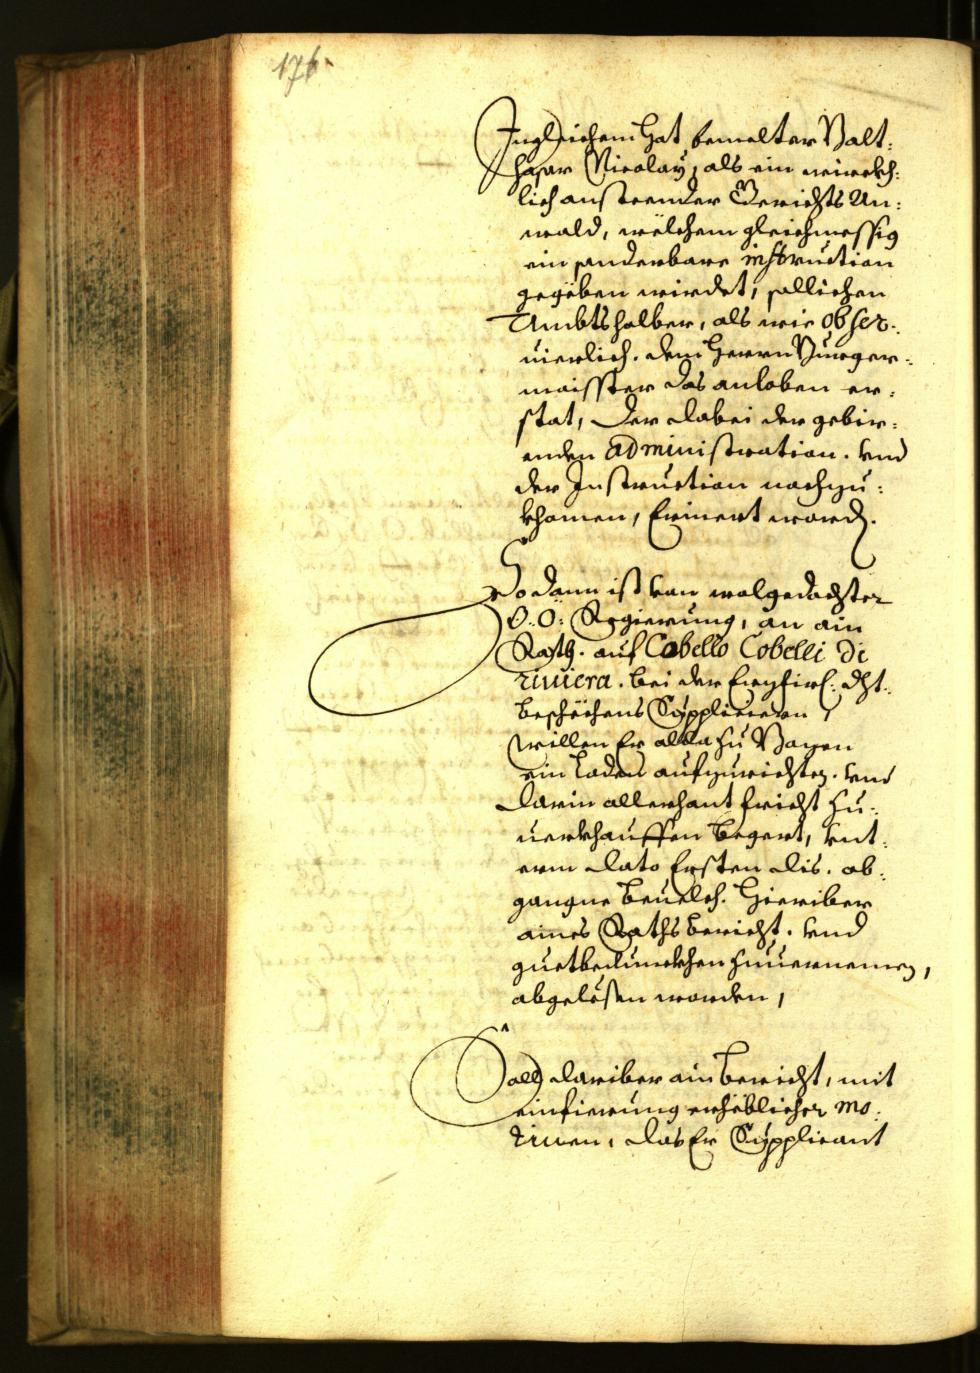 176.
Ingleichem hat bemelter Balt:
hasar Nicolaÿ, als ein
lich anstender Gerichts An:
wald, welchem gleichmessig
ein sonderbare instruction
gegeben wirdet, sollichen
Ambtshalber, als wie obser:
uierlich. dem herrn Burger:
maisster das anloben er:
stat, Der dabei der gebir:
enden administration. vnd
der Instruction nachzu:
khomen, Erinert word.
So dann ist von wolgedachter
O: Ö: Regierung, an ain
Rath. auf Cobello Cobelli di
riuiera. bei der Erzfirl: dht:
beschechens Supplicieren,
willen Er alda zu Bozen
ein Laden aufzurichten. vnd
darin allerhant fricht zu:
uerkhauffen begert, vnt:
erm dato Ersten dis. ab:
gangne beuelch. hieriber
aines Raths bericht. vnd
guetbedunckhen zuuernemen,
abgelesen worden,
Soll dariber ain bericht, mit
einfierung erheblicher mo:
tiuen, das Er Supplicant